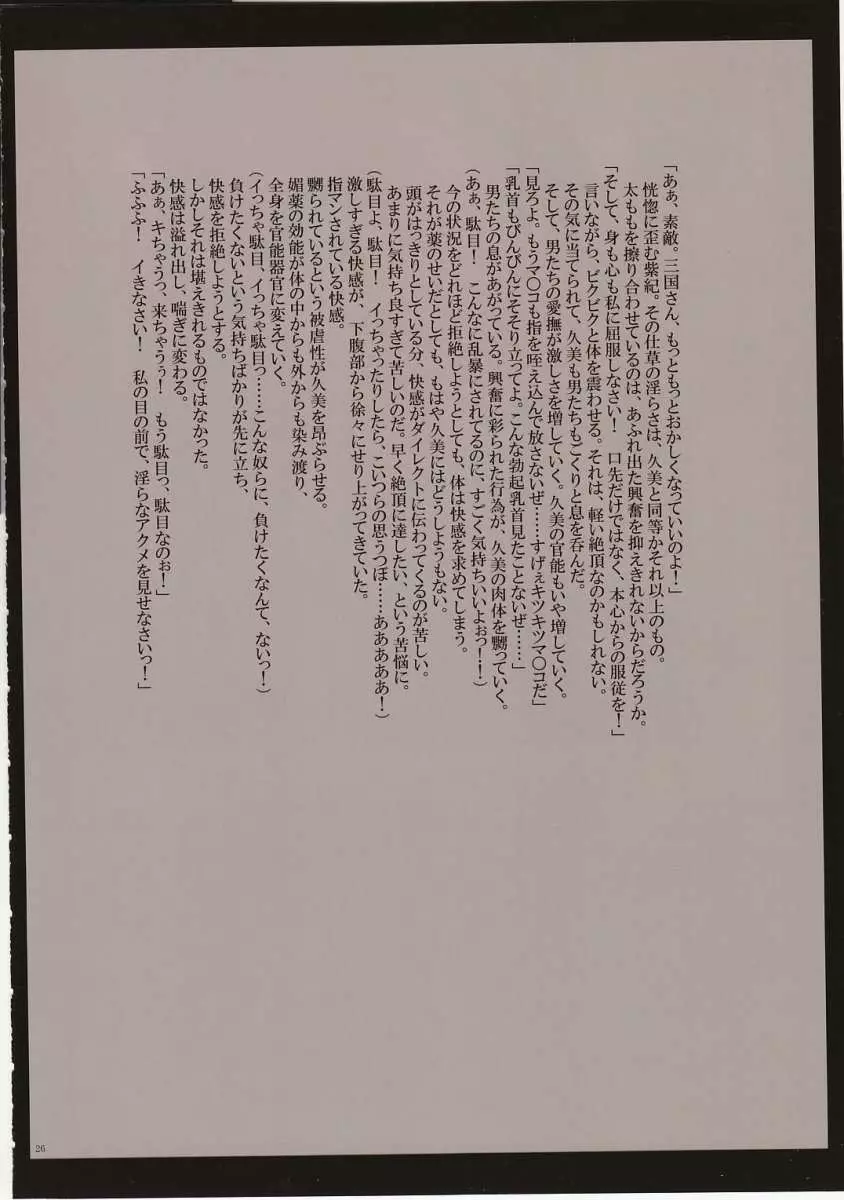 「あぁ、素敵。三国さん、もっともっとおかしくなっていいのよ！」
恍惚に歪む紫紀。その仕草の淫らさは、久美と同等かそれ以上のもの。
太ももを擦り合わせているのは、あふれ出た興奮を抑えきれないからだろうか。
「そして、身も心も私に屈服しなさい！　口先だけではなく、本心からの服従を！」
言いながら、ビクビクと体を震わせる。それは、軽い絶頂なのかもしれない。
その気に当てられて、久美も男たちもごくりと息を呑んだ。
そして、男たちの愛撫が激しさを増していく。久美の官能もいや増していく。
「見ろよ。もうマ〇コも指を咥え込んで放さないぜ……すげぇキツキツマ〇コだ」
「乳首もびんびんにそそり立ってよ。こんな勃起乳首見たことないぜ……」
男たちの息があがっている。興奮に彩られた行為が、久美の肉体を嬲っていく。
（あぁ、駄目！　こんなに乱暴にされてるのに、すごく気持ちいいよぉっ！！）
今の状況をどれほど拒絶しようとしても、体は快感を求めてしまう。
それが薬のせいだとしても、もはや久美にはどうしようもない。
頭がはっきりとしている分、快感がダイレクトに伝わってくるのが苦しい。
あまりに気持ち良すぎて苦しいのだ。早く絶頂に達したい、という苦悩に。
（駄目よ、駄目！　イっちゃったりしたら、こいつらの思うつぼ……ああああああ！）
激しすぎる快感が、下腹部から徐々にせり上がってきていた。
指マンされている快感。
嬲られているという被虐性が久美を昂ぶらせる。
媚薬の効能が体の中からも外からも染み渡り、
全身を官能器官に変えていく。
（イっちゃ駄目、イっちゃ駄目っ……こんな奴らに、負けたくなんて、ないっ！）
負けたくないという気持ちばかりが先に立ち、
快感を拒絶しようとする。
しかしそれは堪えきれるものではなかった。
快感は溢れ出し、喘ぎに変わる。
「あぁ、キちゃうっ、来ちゃうぅ！　もう駄目っ、駄目なのぉ！」
「ふふふ！　イきなさい！　私の目の前で、淫らなアクメを見せなさいっ！」
26